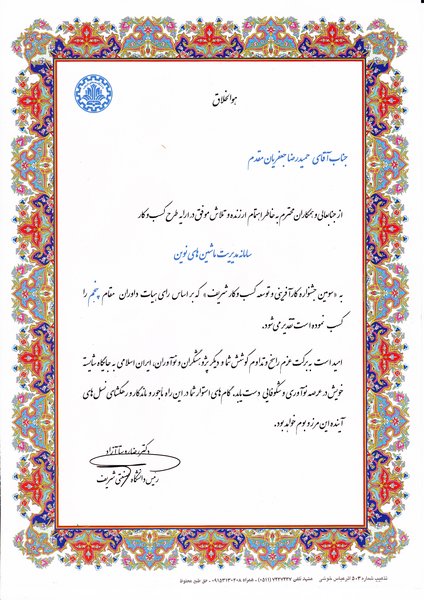 هوالخلاق
جناب آقای حمیدرضا جعفریان مقدم
از جنابعالی و همکاران محترم به خاطر اهتمام ارزنده و تلاش موفق در ارایه طرح کسب و کار
سامانه مدیریت ماشین های نوین
به «سومین جشنواره کارآفرینی و توسعه کسب و کار شریف» که بر اساس رای هیات داوران مقام پنجم را
کسب نموده است تقدیر می شود.
امید است به برکت عزم راسخ و تداوم کوشش شما و دیگر پژوهشگران و نوآوران، ایران اسلامی به جایگاه شایسته
خویش در عرصه نوآوری و شکوفایی دست یابد. گام های استوار شما در این راه ماجور و ماندگار و رهگشای نسل های
آینده این مرز و بوم خواهد بود.
دکتر رضا روستا آزاد
رئیس دانشگاه صنعتی شریف
تذهیب شماره ۵۰۳ اثر عباس خوشی مشهد تلفن ۷۲۲۷۴۲۷ (۰۵۱۱) - همراه ۰۹۱۵۳۱۳۰۲۰۸ - حق طبع محفوظ